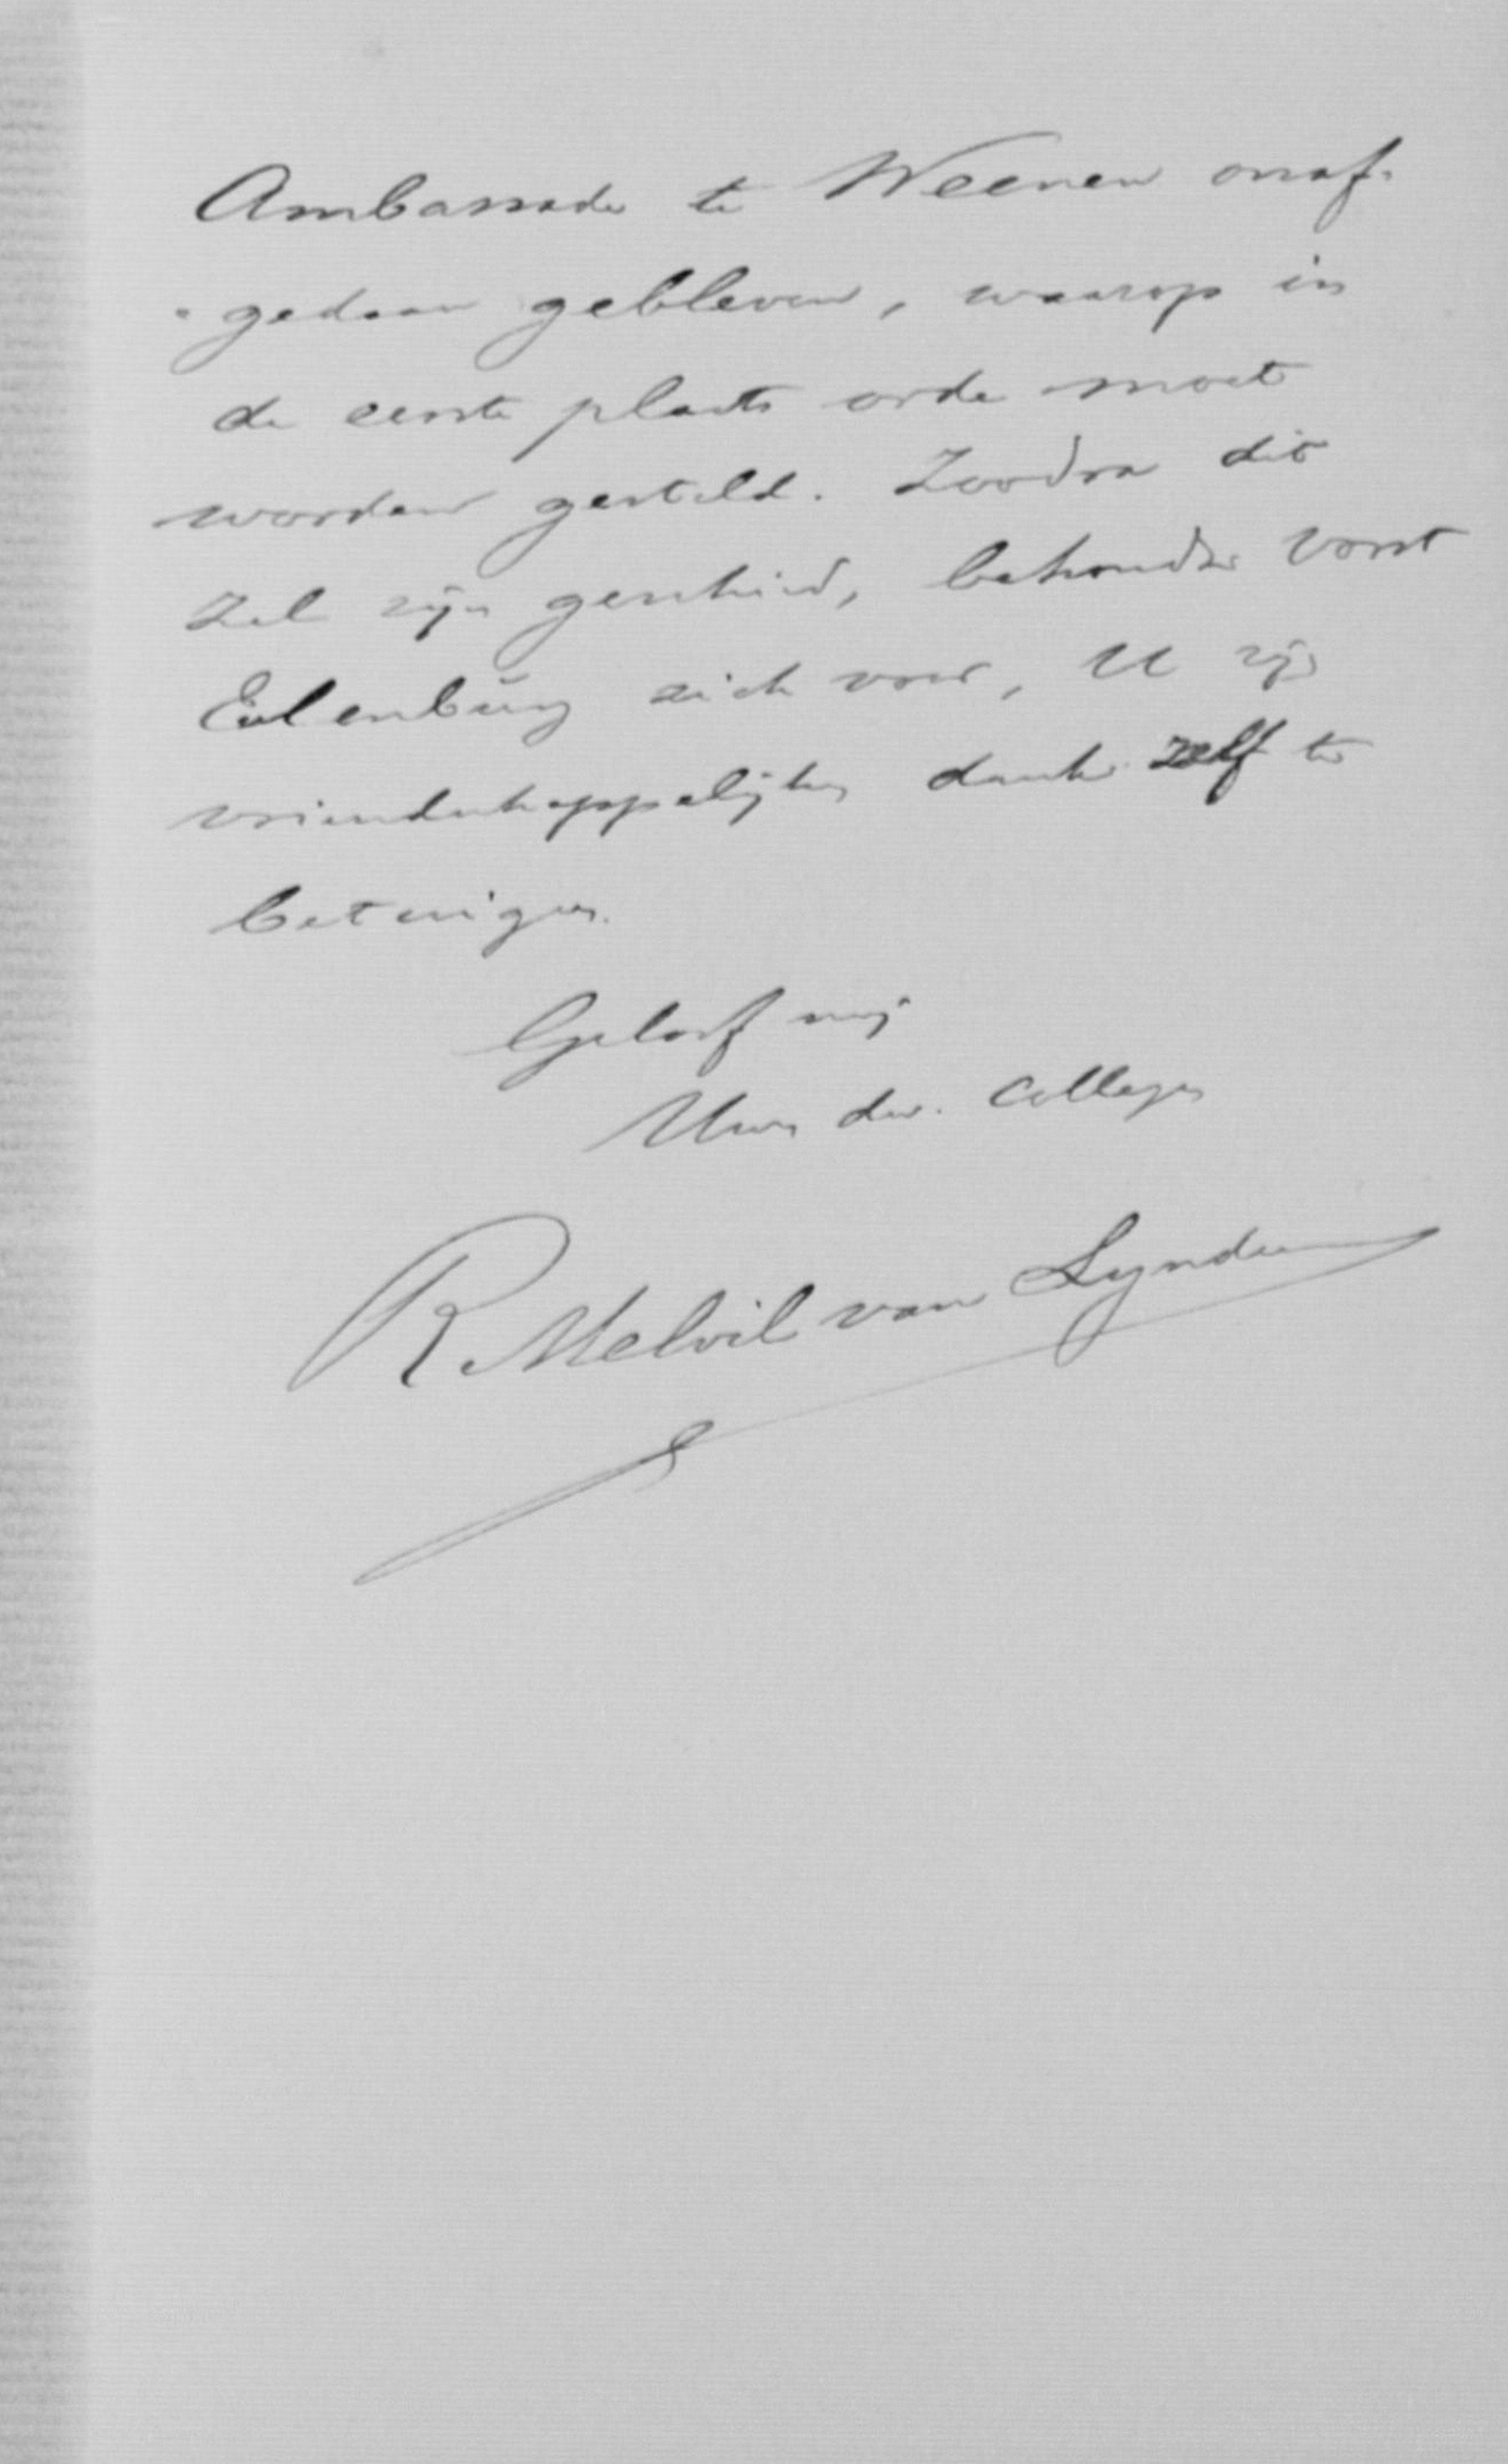 Ambassade te Weenen onaf-
-gedaan gebleven, waarop in
de eerste plaats orde moet
worden gesteld. Zoodra dit
zal zijn geschied, behoudt Vorst
Eulenburg zich voor, U zijn
vriendschappelijken dank zelf te
betuigen.
Geloof mij
Uw dw. Collega
R. Melvil van Lynden